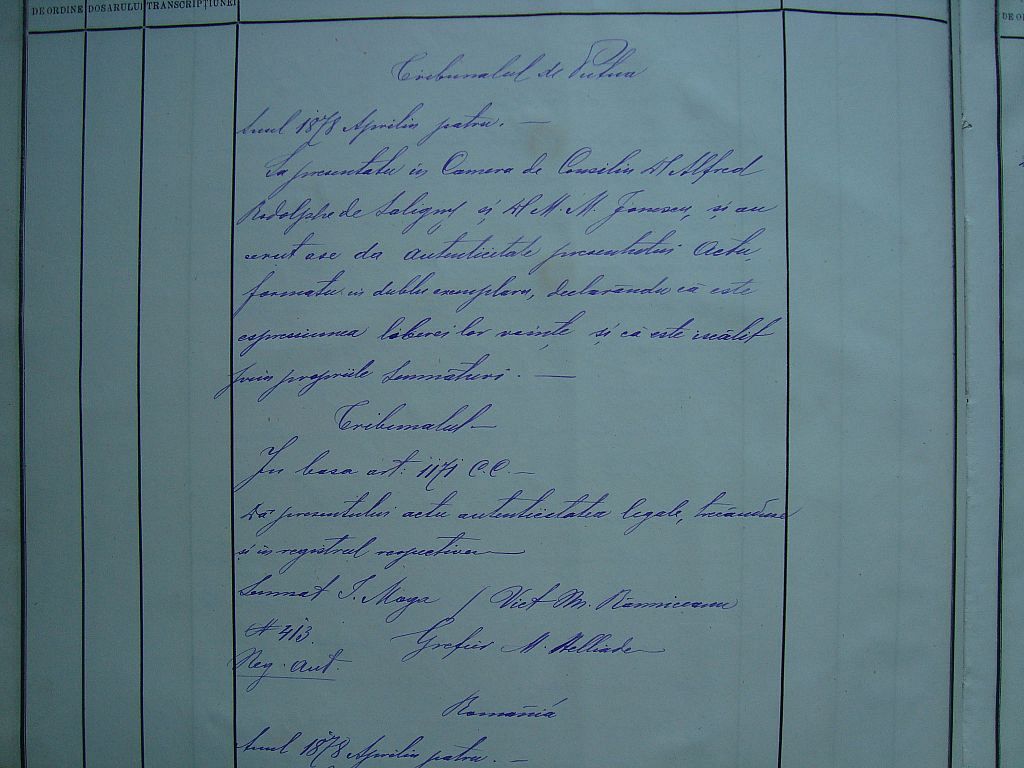 DE ORDINE DOSARULUI TRANSCRIPȚIUNEI
DE OR
Tribunalul de Putna
Anul 1878 Aprilie patru. —
Sa presentatu in Camera de Consiliu Dl Alfred
Rodolphe de Saligny și Dl M. M. Jonescu, si au
cerut ase da autenticitate presentului Actu,
formatu in dublu exemplaru, declarându că este
espresiunea liberei lor voințe, și că este iscălit
prin propriile semnături. —
Tribunalul —
In basa art. 1171 C.C. —
Dă presentului actu autenticitatea legale, trecându-se
si in registrul respectivu —
Semnat I. Moga / Vict. M. Râmniceanu
# 413. Grefier M. Helliade —
Reg. Aut.
România
Anul 1878 Aprilie patru. —